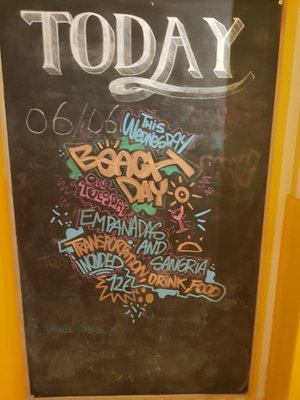 TODAY
06/06
This
Wednesday
BEACH
DAY
TUESDAY
EMPANADAS
AND
SANGRIA
TRANSPORTATION, DRINK, FOOD
INCLUDED
12€